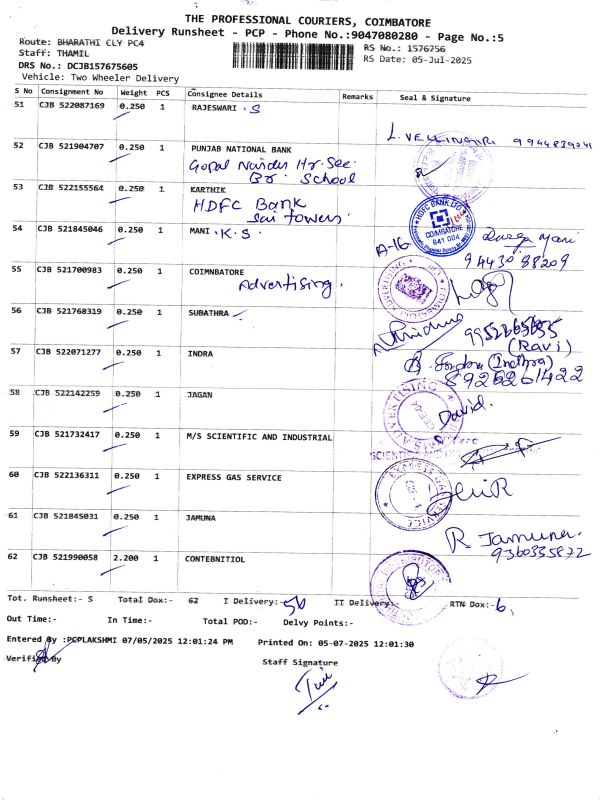 THE PROFESSIONAL COURIERS, COIMBATORE
Delivery Runsheet - PCP - Phone No.:9047080280 - Page No.:5
Route: BHARATHI CLY PC4
RS No.: 1576756
Staff: THAMIL
RS Date: 05-Jul-2025
DRS No.: DCJB157675605
Vehicle: Two Wheeler Delivery
S No Consignment No Weight PCS Consignee Details Remarks Seal & Signature
51 CJB 522087169 0.250 1 RAJESWARI . S
52 CJB 521904707 0.250 1 PUNJAB NATIONAL BANK
School
53 CJB 522155564 0.250 1 KARTHIK
HDFC Bank
Sai Towers.
54 CJB 521845046 0.250 1 MANI . K. S.
HDFC BANK LTD
COIMBATORE
641 004
A-16
Mani
55 CJB 521700983 0.250 1 COIMNBATORE
Advertising.
56 CJB 521768319 0.250 1 SUBATHRA
(Ravi)
57 CJB 522071277 0.250 1 INDRA
58 CJB 522142259 0.250 1 JAGAN
David.
59 CJB 521732417 0.250 1 M/S SCIENTIFIC AND INDUSTRIAL
60 CJB 522136311 0.250 1 EXPRESS GAS SERVICE
61 CJB 521845031 0.250 1 JAMUNA
R Jamuna.
9360335872
62 CJB 521990058 2.200 1 CONTEBNITIOL
Tot. Runsheet:- 5 Total Dox:- 62 I Delivery:- 56 II Delivery:- RTN Dox:- 6
Out Time:- In Time:- Total POD:- Delvy Points:-
Entered By :PCPLAKSHMI 07/05/2025 12:01:24 PM Printed On: 05-07-2025 12:01:30
Verified By Staff Signature